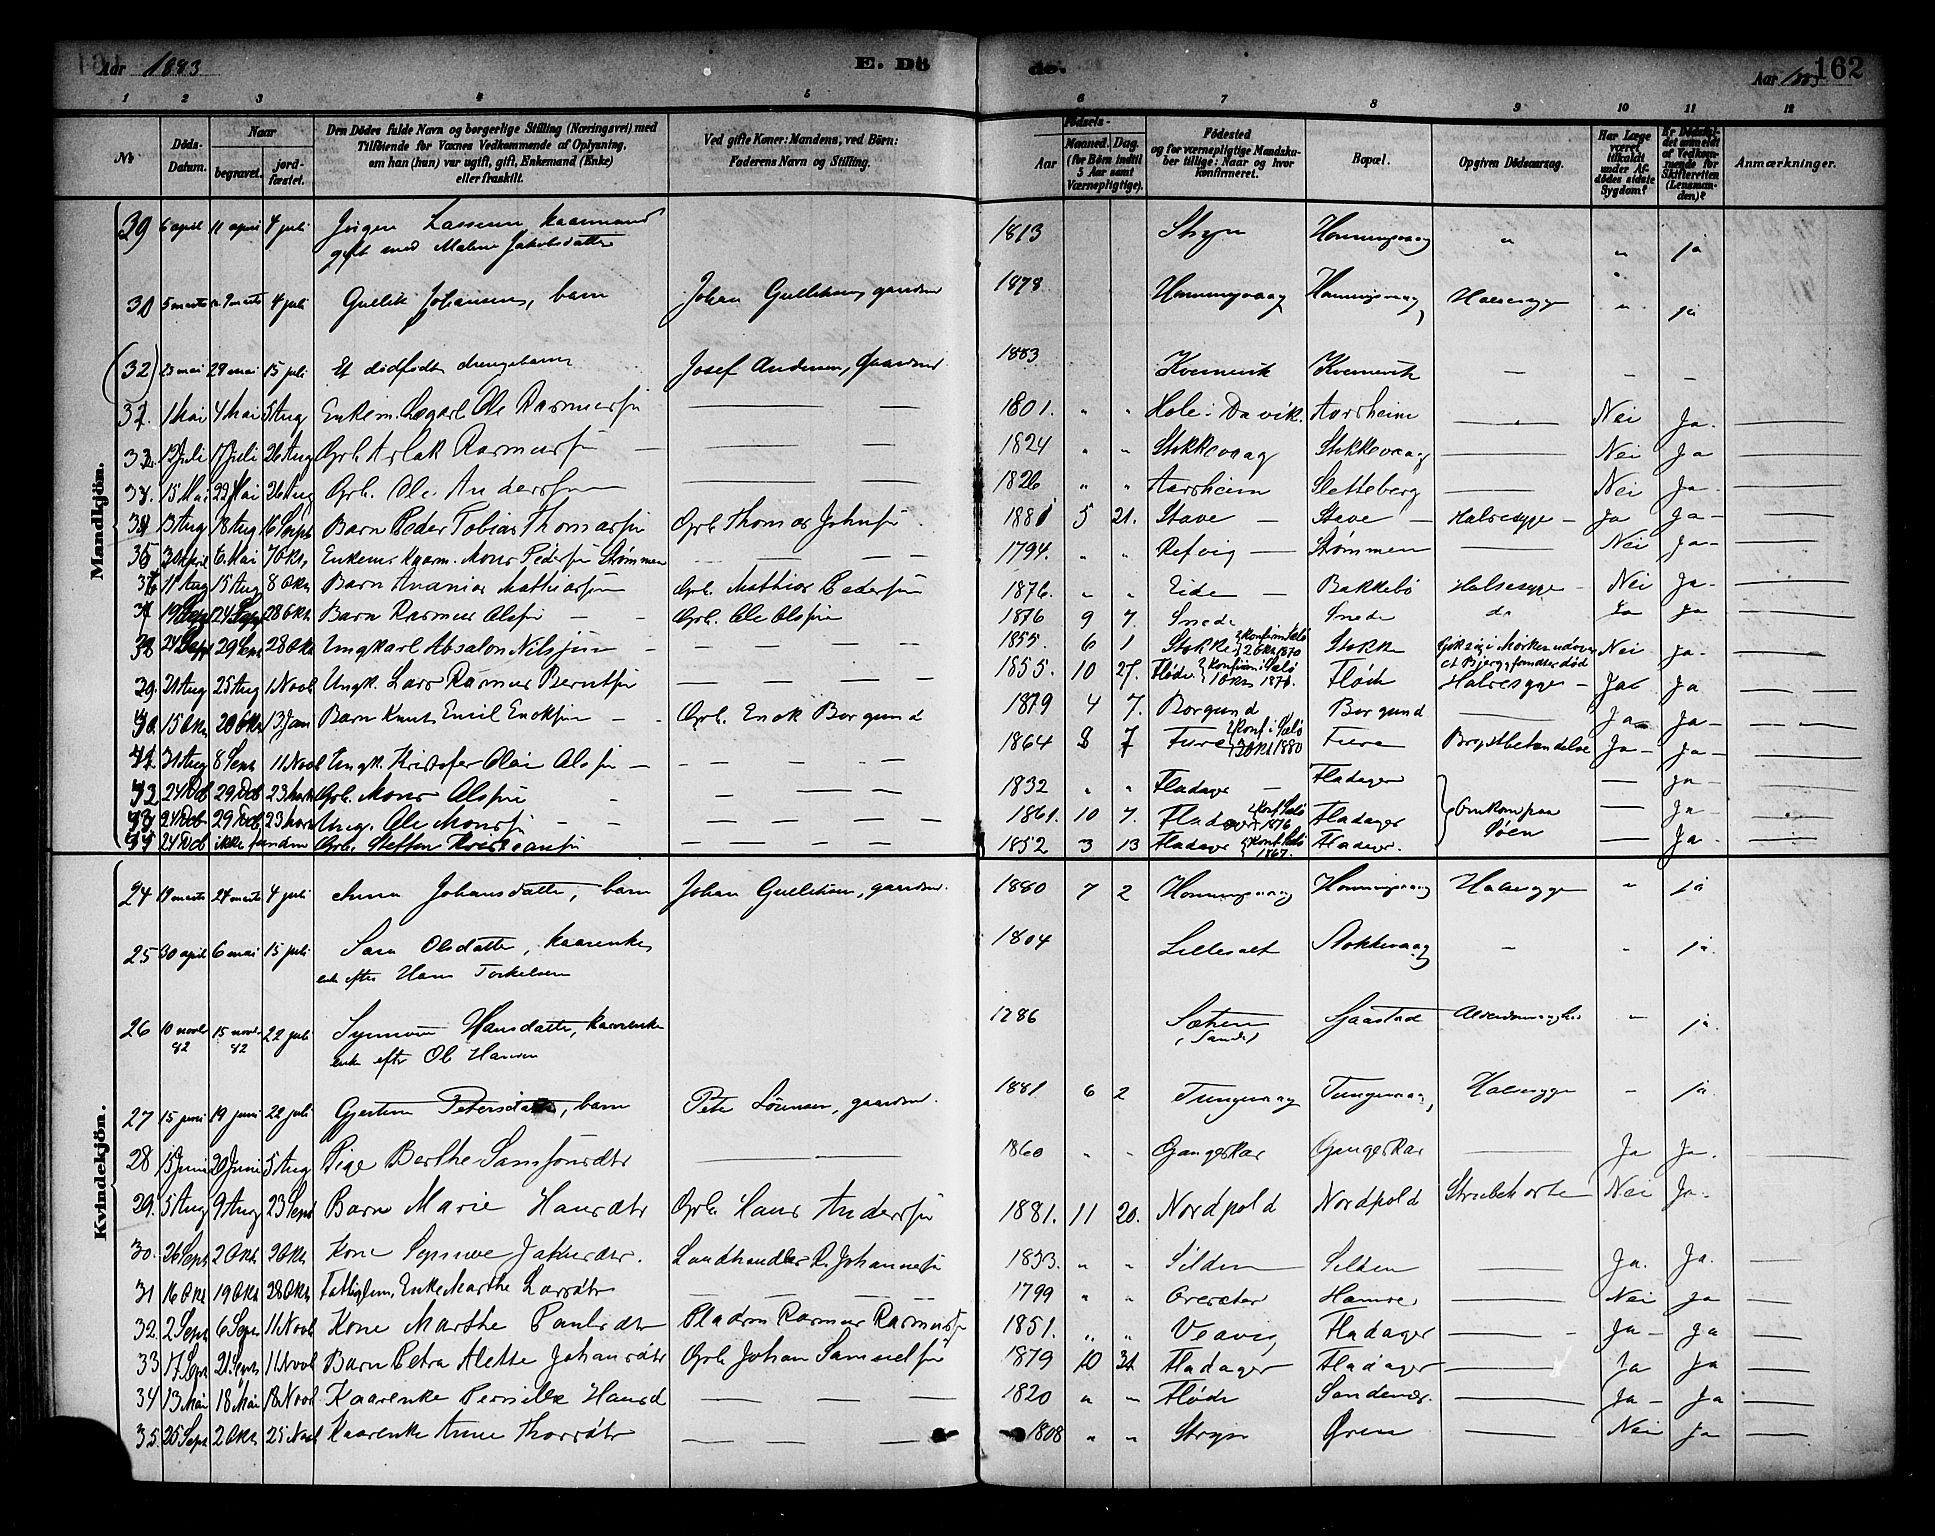 Aar 1883
E. Dö
de.
Aar 1883
162
1 2 3 4 5 6 7 8 9 10 11 12
No
Döds-Datum.
Naar
begravet.
jordfæstet.
Den Dödes fulde Navn og borgerlige Stilling (Næringsvei) med
Tilföiende for Voxnes Vedkommende af Oplysning,
om han (hun) var ugift, gift, Enkemand (Enke)
eller fraskilt.
Ved gifte Koner: Mandens, ved Börn:
Faderens Navn og Stilling.
Födsels-
Aar
Maaned. Dag.
(for Börn indtil
5 Aar samt
Værnepligtige).
Födested
og for værnepligtige Mandska-
ber tillige: Naar og hvor
konfirmeret.
Bopæl.
Opgiven Dödsaarsag.
Har Læge
været
tilkaldt
under Af-
dödes sidste
Sygdom?
Er Dödsfal-
det anmeldt
af Vedkom-
mende for
Skifteretten
(Lensman-
den)?
Anmærkninger.
Mandkjön.
29 6 april 11 april 4 juli Jörgen Lassesen kaarmand 1813 Stryn Honningsvaag " " ja
gift med Malene Jakobsdatter
30 5 marts 9 marts 4 juli Gullik Johansen, barn Johan Gulliksen, gaardm 1878 Honningsvaag Honningsvaag Halssyge " ja
(32) 23 mai 29 mai 15 juli Et dödfödt drengebarn Josef Andersen, Gaardm 1883 Kvernevik Kvernevik — — —
1 Mai 4 Mai 5 Aug Enkem. Lægdsl. Ole Rasmussön 1801. " " Hole i Davik. Aarsheim — Nei Ja.
12 Juli 17 Juli 26 Aug Grb. Aslak Rasmussön 1824 " " Stokkevaag Stokkevaag — Nei Ja
15 Mai 22 Mai 26 Aug Grb. Ole Anderssön 1826 " " Aarsheim Sletteberg — Nei Ja.
13 Aug 18 Aug 16 Sept Barn Peder Tobias Thomassön Grb. Thomas Johnsön 1881 5 21. Stave Stave Halssyge Ja Ja
35 30 April 6. Mai 7 Okt, Enkem. Kaarm. Mons Pedersön Strømmen 1794. " " Refvig Strømmen — Nei Ja
36 11 Aug 15 Aug 8 Okt Barn Ananias Mathiassön Grb. Mathias Pedersön 1876. " " Eide Bakkebö Halssyge Nei Ja.
37 19 Sept 24 Sept 28 Okt Barn Rasmus Olsön Grb. Ole Olsön 1876 9 7. Snede Snede do Ja Ja.
38 24 Sept 29 Sept 28 Okt Ungkarl Absalon Nilssön 1855. 6 1 Stokke Konfirm. Selö 2 Okt 1870 Stokke Gik sig i Mørke udover et Bjerg, fandtes död Nei Ja.
39. 21 Aug 25 Aug 1 Novb Ungk. Lars Rasmus Berntsön 1855. 10 27. Fløde Konfirm. i Selö 1 Okt 1871. Fløde Halssyge Ja Ja
40. 15 Okt 20 Okt 13 Jan Barn Knut Emil Enoksön Grb. Enok Borgund 1879 4 7. Borgund Borgund — Ja Ja
41. 31 Aug 8 Sept 11 Novb Ungk. Kristofer Olai Olsön 1864 8 7 Fure Konf. i Selö 3 Okt 1880 Fure Brystbetændelse Ja Ja
42 24 Deb 29 Deb 23 Marts Grb. Mons Olsön 1832 " " Fladager Fladager Omkom paa — Ja
43 24 Deb 29 Deb 23 Marts Ung. Ole Monssön 1861. 10 7. Fladager Konf. Selö 1876 Fladager Söen — Ja
44 24 Deb ikke funden Grb. Steffen Kristiansön 1852 3 13 Fladager Konf. Selö 1867. Fladager. — Ja.
Kvindekjön.
24 19 marts 24 marts 4 juli Anna Johansdatter, barn Johan Gulliksen, gaardm. 1880 7 2 Honningsvaag Honningsvaag Halssyge " ja
25 30 april 6 mai 15 juli Sara Olsdatter, kaarenke 1804 Lillesalt Stokkevaag " " ja.
enke efter Hans Torkelsen
26 10 novb. 82 15 novb. 82 22 juli Synnöve Hansdatter, kaarenke 1786 Sætren (Sande) Gaastad Alderdomssvaghed " ja.
enke efter Ole Hansen
27 15 juni 19 juni 22 juli Gjertine Petersdatter, barn Peter Sörensen, gaardm. 1881 6 2 Tungevaag Tungevaag, Halssyge " ja.
28 15 Juni 20 Juni 5 Aug Pige Berthe Samsonsdtr 1860 " " Gangeskar Gangeskar — Ja Ja.
29. 5 Aug 9 Aug 23 Sept Barn Marie Hansdtr Grb. Hans Anderssön 1881. 11 20. Nordpold Nordpold Strubehoste Nei Ja.
30. 26 Sept 2 Okt 9 Okt Kone Synnøve Jakobsdtr. Landhandler R. Johannessön 1833. " " Silden Silden Ja. Ja.
31 16 Okt 19 Okt 28 Okt Fattiglem, Enke Marthe Larsdtr 1799 " " Oversæter Hamre Nei Ja
32. 2 Sept 6 Sept 11 Novb Kone Marthe Paulsdtr Pladsm Rasmus Rasmussön 1851. " " Veavig Fladager — Ja Ja
33 17 Sept 21 Sept 11 Novb Barn Petra Alette Johansdtr Grb. Johan Samuelsön 1879 10 31 Fladager Fladager — Ja Ja
34 13 Mai 18 Mai 18 Novb Kaarenke Pernille Hansd 1820 " " Flöde Sandenær. — Ja Ja
35. 25 Sept 2 Okt 25 Novb Kaarenke Anne Thorsdtr 1808 " " Stryn Øren — Nei Ja